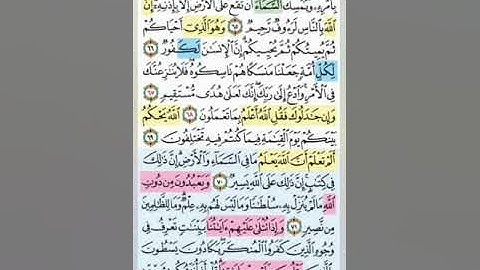 بِأَمْرِهِۦ وَيُمْسِكُ ٱلسَّمَآءَ أَن تَقَعَ عَلَى ٱلْأَرْضِ إِلَّا بِإِذْنِهِۦٓ إِنَّ
ٱللَّهَ بِٱلنَّاسِ لَرَءُوفٌ رَّحِيمٌ ٦٥ وَهُوَ ٱلَّذِىٓ أَحْيَاكُمْ
ثُمَّ يُمِيتُكُمْ ثُمَّ يُحْيِيكُمْ إِنَّ ٱلْإِنسَٰنَ لَكَفُورٌ ٦٦
لِكُلِّ أُمَّةٍ جَعَلْنَا مَنسَكًا هُمْ نَاسِكُوهُ فَلَا يُنَٰزِعُنَّكَ
فِى ٱلْأَمْرِ وَٱدْعُ إِلَىٰ رَبِّكَ إِنَّكَ لَعَلَىٰ هُدًى مُّسْتَقِيمٍ ٦٧
وَإِن جَٰدَلُوكَ فَقُلِ ٱللَّهُ أَعْلَمُ بِمَا تَعْمَلُونَ ٦٨ ٱللَّهُ يَحْكُمُ
بَيْنَكُمْ يَوْمَ ٱلْقِيَٰمَةِ فِيمَا كُنتُمْ فِيهِ تَخْتَلِفُونَ ٦٩
أَلَمْ تَعْلَمْ أَنَّ ٱللَّهَ يَعْلَمُ مَا فِى ٱلسَّمَآءِ وَٱلْأَرْضِ إِنَّ ذَٰلِكَ
فِى كِتَٰبٍ إِنَّ ذَٰلِكَ عَلَى ٱللَّهِ يَسِيرٌ ٧٠ وَيَعْبُدُونَ مِن دُونِ
ٱللَّهِ مَا لَمْ يُنَزِّلْ بِهِۦ سُلْطَٰنًا وَمَا لَيْسَ لَهُم بِهِۦ عِلْمٌ وَمَا لِلظَّٰلِمِينَ
مِن نَّصِيرٍ ٧١ وَإِذَا تُتْلَىٰ عَلَيْهِمْ ءَايَٰتُنَا بَيِّنَٰتٍ تَعْرِفُ فِى
وُجُوهِ ٱلَّذِينَ كَفَرُوا۟ ٱلْمُنكَرَ يَكَادُونَ يَسْطُونَ